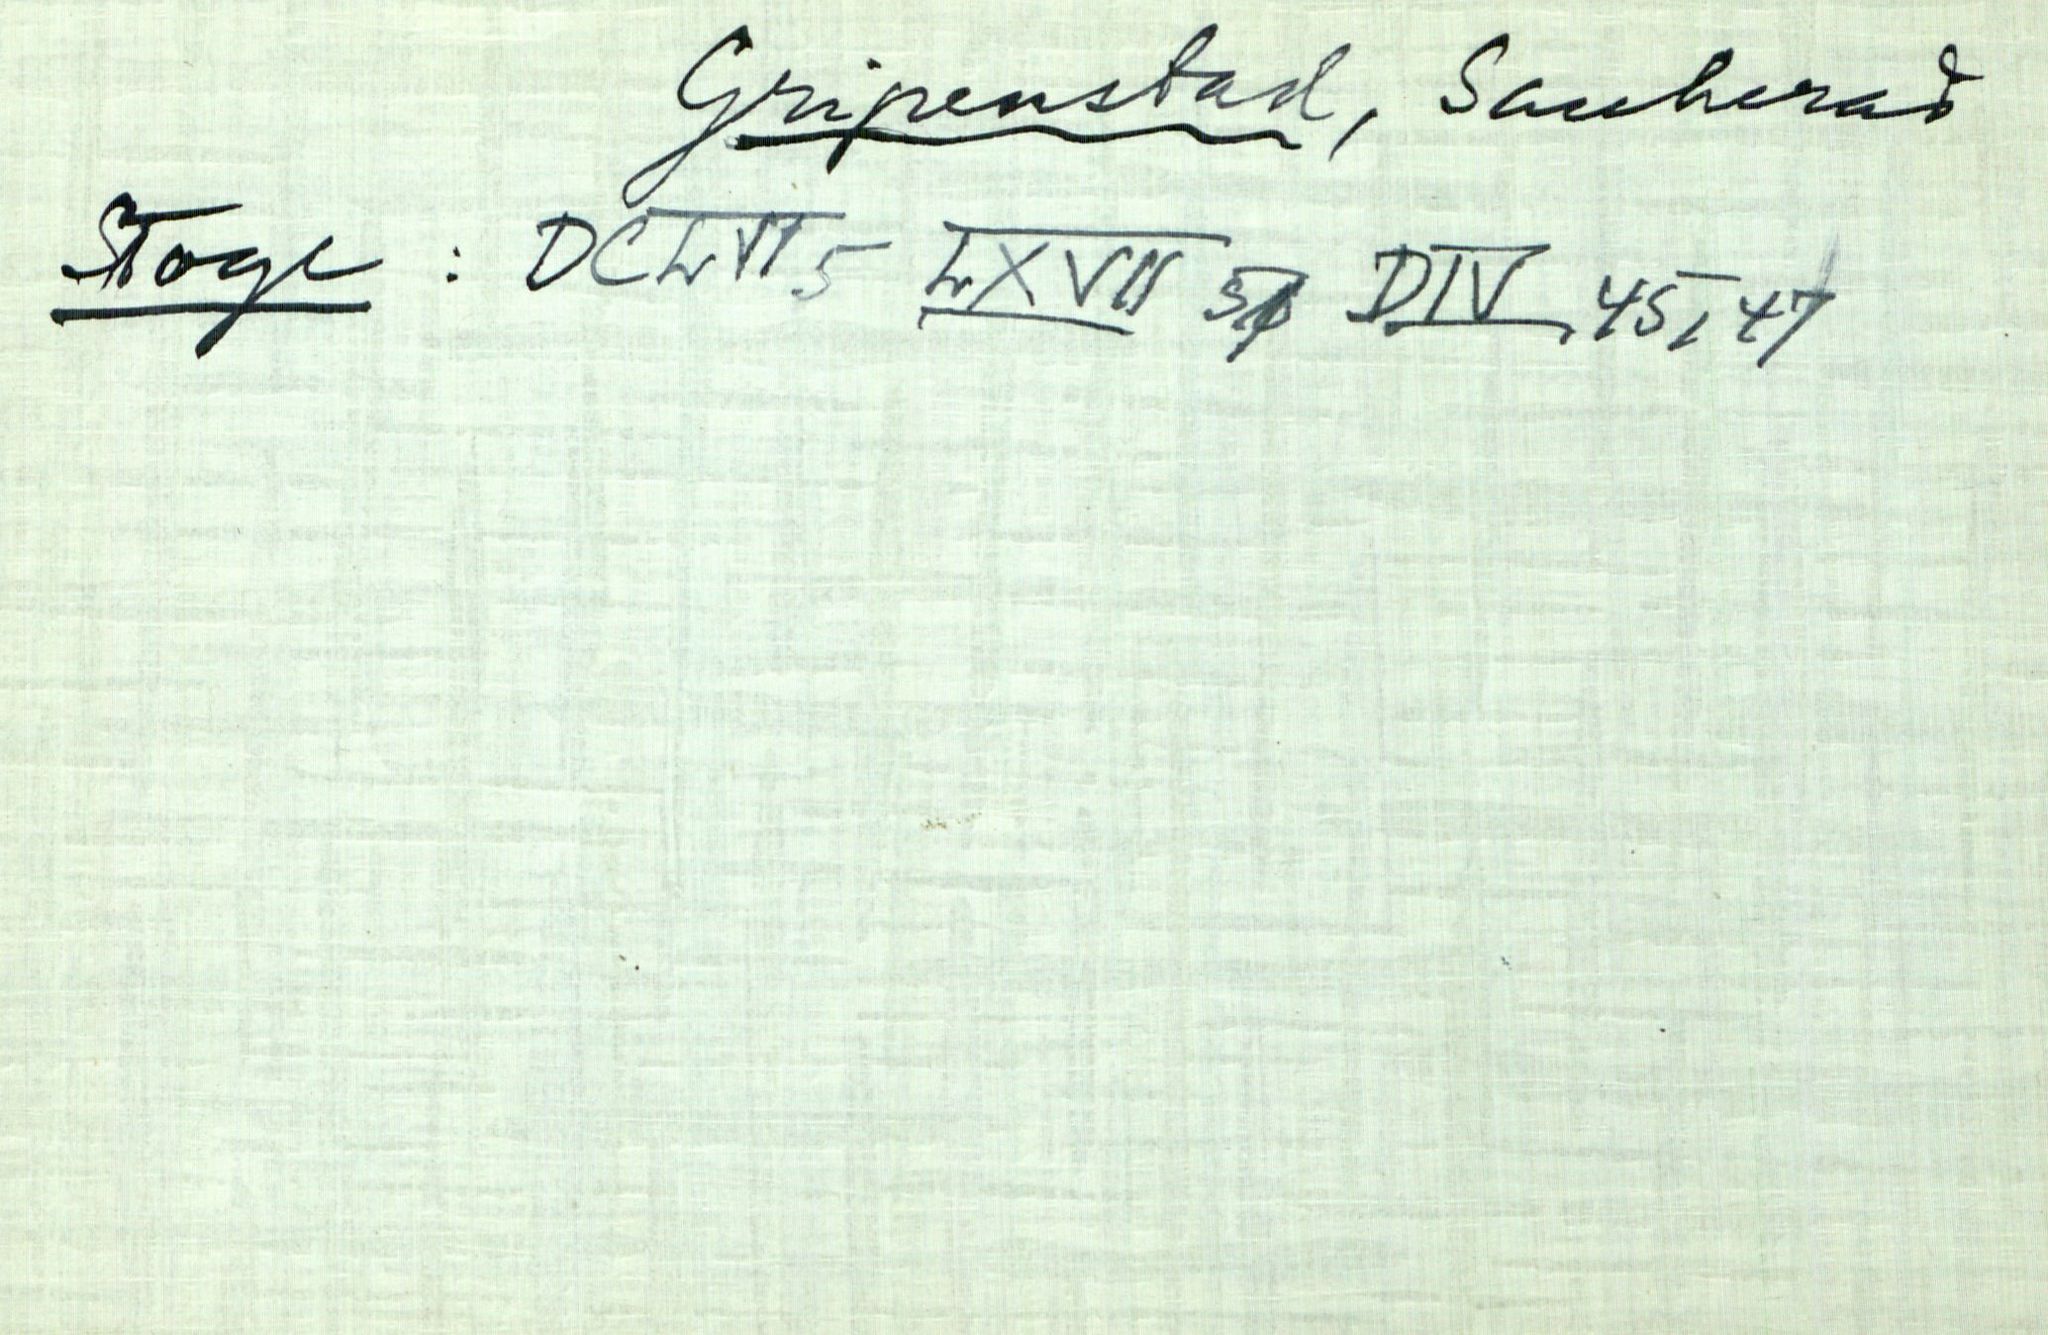 Gripenstad, Sauherad
Toge : DCLVII 5 LXVII DIV 45, 47